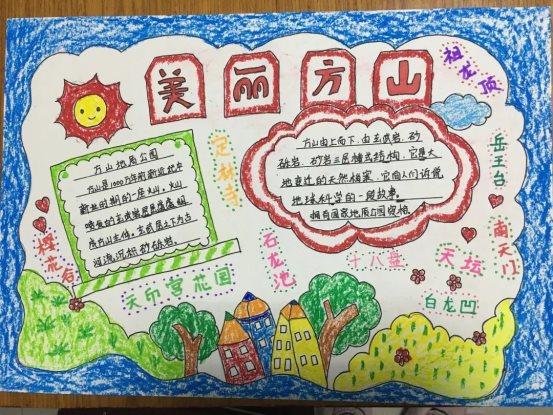 美丽方山
祖龙顶
方山地质公园
方山是1000万年前新近纪中
新世时期的一座火山,火山
喷发的玄武岩
成方山主体。玄武岩之下为古
河流沉积砂砾岩。
定林寺
方山由上而下,由玄武岩、砂
砾岩、砂岩三层构式结构,它是大
地变迁的天然档案,它向人们诉说
地球科学的一段故事。
拥有国家地质公园资格
岳王台
南天门
樱花谷
天印宫花园
石龙池
十八盘
天坛
白龙凹